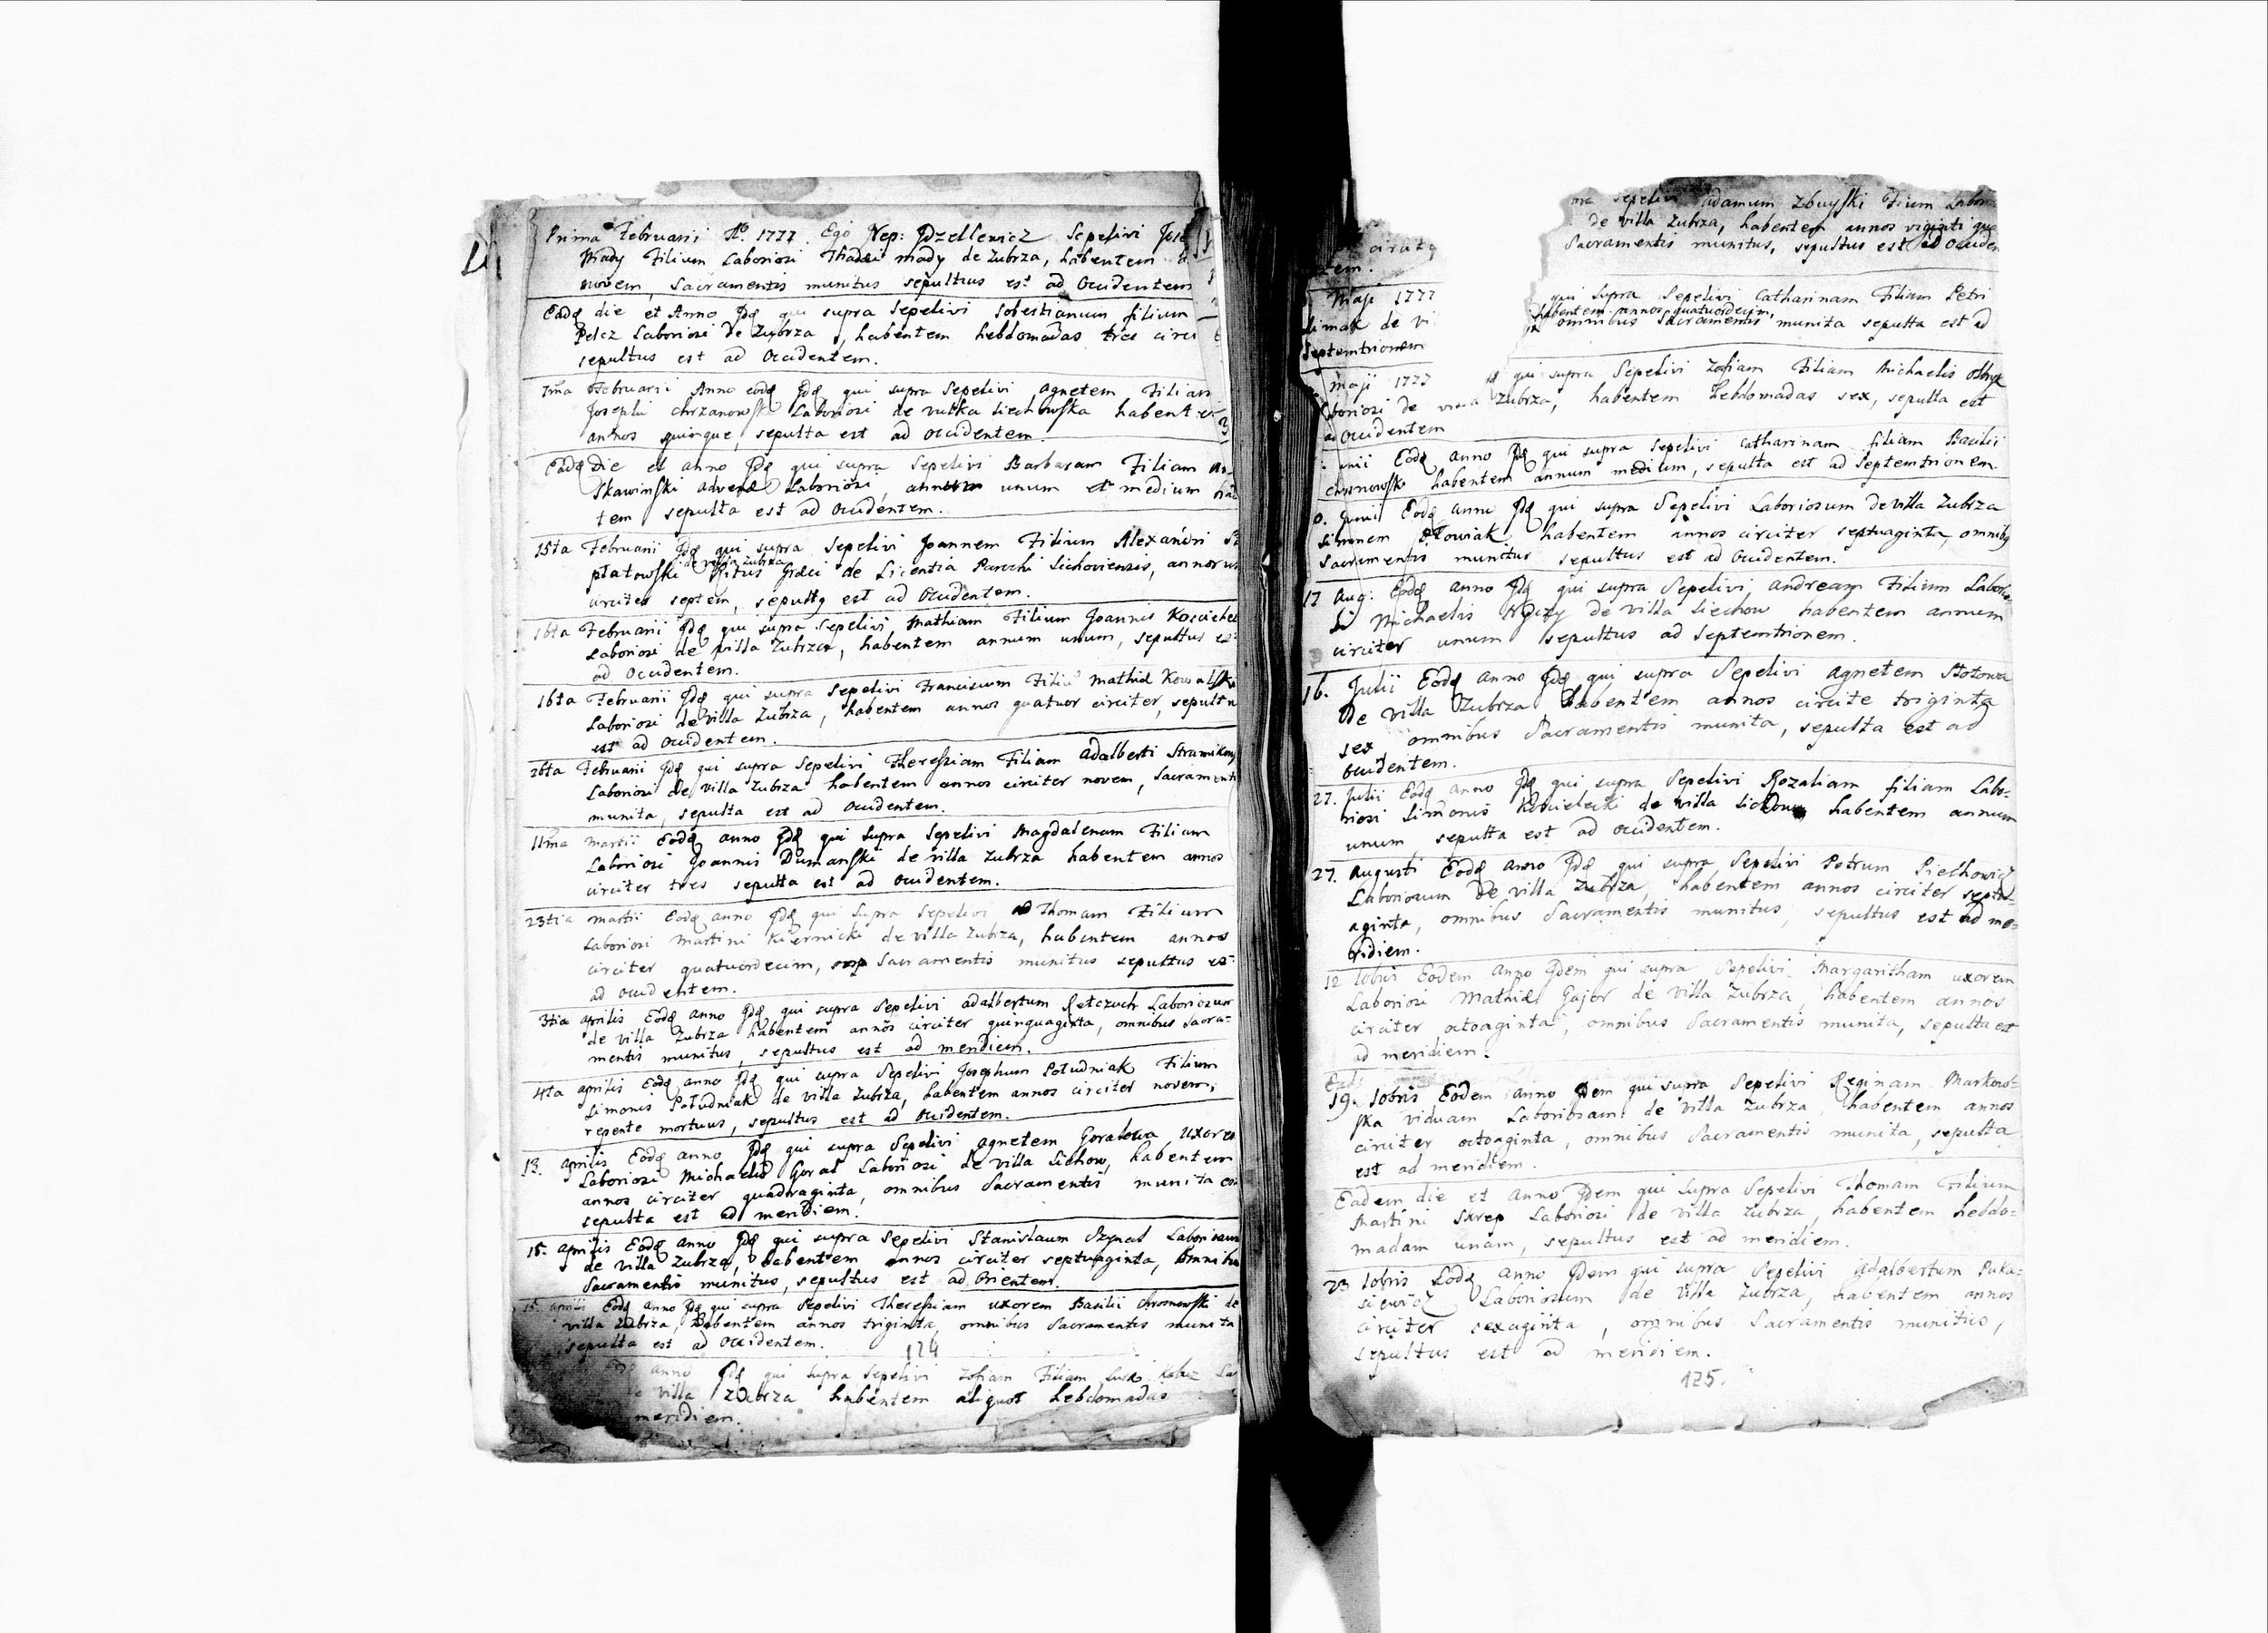 Prima Februarii Ao. 1777. Ego Nep: Jdzellewicz Sepelivi
Mady Filium Laboriosi Thadæi Mady de Zubrza, habentem
novem, Sacramentis munitus sepultus est ad Occidentem
Eadē die et Anno Jdē qui supra Sepelivi Sobestianum filium
Pelcz Laboriosi de Zubrza, habentem hebdomadas tres circi
sepultus est ad Occidentem.
7ma Februarii Anno eodē Jdē qui supra Sepelivi Agnetem Filiam
Josephi Chrzanowski Laboriosi de Vulka Siechowska habentem
annos quinque, sepulta est ad Occidentem.
Eadē Die et anno Jdē qui supra Sepelivi Barbaram Filiam
Skawinski advenæ Laboriosi, annum unum et medium
tem sepulta est ad Occidentem.
15ta Februarii Jdē qui supra Sepelivi Joannem Filium Alexandri
de villa Zubrza
płatowski Ritus Græci de Licentia Parochi Sichoviensis, annorum
circiter septem, sepultq est ad Occidentem.
16ta Februarii Jdē qui supra Sepelivi Mathiam Filium Joannis
Laboriosi de villa Zubrza, habentem annum unum, sepultus est
ad Occidentem.
16ta Februarii Jdē qui supra Sepelivi Franciscum Filiū Mathiæ Kowalski
Laboriosi de villa Zubrza, habentem annos quatuor circiter, sepultu
est ad Occidentem.
26ta Februarii Jdē qui supra Sepelivi Theressiam Filiam Adalberti
Laboriosi de villa Zubrza habentem annos circiter novem, Sacramenti
munita, sepulta est ad Occidentem.
11ma Martii Eodē anno Jdē qui supra Sepelivi Magdalenam Filiam
Laboriosi Joannis Dumanski de villa Zubrza habentem annos
circiter tres sepulta est ad Occidentem.
23tia Martii Eodē anno Jdē qui supra Sepelivi Thomam Filium
Laboriosi Martini Kiernicki de villa Zubrza, habentem annos
circiter quatuordecim, Sacramentis munitus sepultus est
ad Occidentem.
3tia Aprilis Eodē anno Jdē qui supra Sepelivi Adalbertum Laboriosum
de villa Zubrza habentem annos circiter quinquaginta, omnibus Sacra=
mentis munitus, sepultus est ad meridiem.
4ta Aprilis Eodē anno Jdē qui supra Sepelivi Josephum Południak Filium
Simonis Południak de villa Zubrza, habentem annos circiter novem,
repente mortuus, sepultus est ad Occidentem.
13. Aprilis Eodē anno Jdē qui supra Sepelivi Agnetem Goralowa Uxorem
Laboriosi Michaelis Goral Laboriosi de villa Sichow, habentem
annos circiter quadraginta, omnibus Sacramentis munita
sepulta est ad meridiem.
15. Aprilis Eodē anno Jdē qui supra Sepelivi Stanislaum Laboriosum
de villa Zubrza, habentem annos circiter septuaginta, omnibus
Sacramentis munitus, sepultus est ad Orientem.
15. Aprilis Eodē anno Jdē qui supra Sepelivi Theressiam uxorem Basilii Chronowski de
villa Zubrza, habentem annos triginta, omnibus Sacramentis munita
sepulta est ad Occidentem.
124
anno Jdē qui supra Sepelivi Zofiam Filiam
villa Zubrza habentem aliquot hebdomadas
meridiem.
Sepelivi Adamum Zbuyski Filium
de villa Zubrza, habentem annos viginti
Sacramentis munitus, sepultus est ad
tem.
Maji 1777 qui supra Sepelivi Catharinam Filiam Petri
habentem annos quatuordecim,
de vi omnibus Sacramentis munita sepulta est ad
Septemtrionem
Maji 1777 qui supra Sepelivi Zofiam Filiam Michaelis
Laboriosi de villa Zubrza, habentem hebdomadas sex, sepulta est
ad Occidentem
Junii Eodē anno Jdē qui supra Sepelivi Catharinam filiam Basilii
habentem annum medium, sepulta est ad Septemtrionem.
Junii Eodē anno Jdē qui supra Sepelivi Laboriosum de villa Zubrza
Simonem habentem annos circiter septuaginta, omnibq
Sacramentis munitus sepultus est ad Occidentem.
17 Aug: Eodē anno Jdē qui supra Sepelivi Andream Filium
Michaelis de villa Siechow habentem annum
circiter unum sepultus ad septemtrionem.
16. Julii Eodē anno Jdē qui supra Sepelivi Agnetem
de villa Zubrza habentem annos circite triginta
sex omnibus Sacramentis munita, sepulta est ad
Occidentem.
27. Julii Eodē anno Jdē qui supra Sepelivi Rozaliam filiam Labo=
riosi Simonis Koscielecki de villa habentem annum
unum, sepulta est ad Occidentem.
27. Augusti Eodē anno Jdē qui supra Sepelivi Petrum
Laboriosum de villa Zubrza, habentem annos circiter septu=
aginta, omnibus Sacramentis munitus, sepultus est ad me=
ridiem.
12 Eodem Anno Jdem qui supra Sepelivi Margaritham uxorem
Laboriosi Mathiæ Gajor de villa Zubrza, habentem annos
circiter octoaginta, omnibus Sacramentis munita, sepulta est
ad meridiem.
19. Eodem anno Jdem qui supra Sepelivi Reginam Markow=
ska viduam Laboriosam de villa Zubrza, habentem annos
circiter octoaginta, omnibus Sacramentis munita, sepulta
est ad meridiem.
Eadem die et anno Jdem qui supra Sepelivi Thomam Filium
Martini Skrep Laboriosi de villa Zubrza, habentem hebdo=
madam unam, sepultus est ad meridiem.
23 Eodē anno Jdem qui supra Sepelivi Adalbertum
Laboriosum de villa Zubrza, habentem annos
circiter sexaginta, omnibus Sacramentis munitus,
sepultus est ad meridiem.
125.